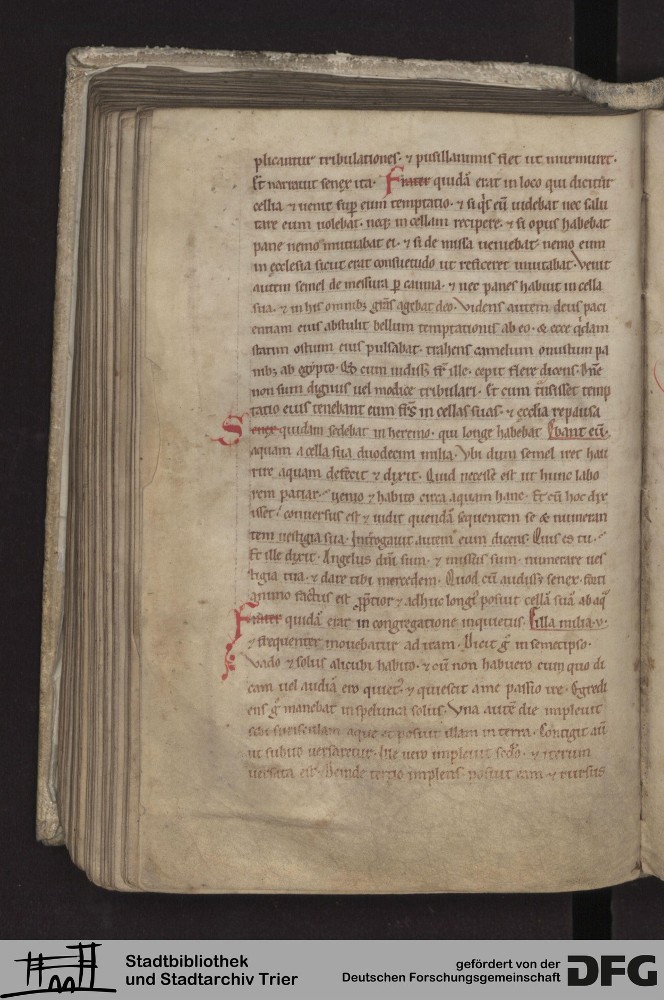 plicantur tribulationes. ⁊ pusillanimis fiet ut murmuret.
Et narravit senex ita. Frater quidā erat in loco qui dicit᷑
cellia ⁊ uenit sup eum temptatio. ⁊ si q̇s eū uidebat nec salu
tare eum uolebat. neq; in cellam recipere. ⁊ si opus habebat
pane nemo mutuabat ei. ⁊ si de missa ueniebat nemo eum
in ęcclesia sicut erat consuetudo ut reficeret inuitabat. Venit
autem semel de messura p̱ cauma. ⁊ nec panes habuit in cella
sua. ⁊ in his omnibȝ grās agebat deo. Videns autem deus paci
entiam eius abstulit bellum temptationis ab eo. & ecce q̇dam
statim ostium eius pulsabat. trahens camelum onustum pa
nibȝ ab egypto. Qd cum uidiss& fr̄ ille. cepit flere dicens. Dn̄e
non sum dignus uel modice tribulari. Et cum t̄nsisset temp
tatio eius tenebant eum fr̄s in cellas suas. ⁊ ęcclia repausa
Senex quidam sedebat in heremo. qui longe habebat bant eū.
aquam a cella sua duodecim milia. Vbi dum semel iret hau
rire aquam defecit ⁊ dixit. Quid necesse est ut hunc labo
rem patiar. uenio ⁊ habito circa aquam hanc. Et cū hoc dix
isset. conuersus est ⁊ uidit quendā sequentem se & numeran
tem uestigia sua. Interogauit autem eum dicens. Quis es tu.
Et ille dixit. Angelus dn̄i sum. ⁊ missus sum numerare ues
tigia tua. ⁊ dare tibi mercedem. Quod cū audiss& senex. forti
animo factus est ⁊ adhuc longi᷒ posuit cellā suā ab aq̄
Frater quidā erat in congregatione inquietus. illa milia. v.
⁊ frequenter mouebatur ad iram. Dicit g̊ in semetipso.
Vado ⁊ solus alicubi habito. ⁊ cū non habuero cum quo di
cam uel audiā ero quiet᷒. ⁊ quiescit a me passio ire. Egredi
ens g̊ manebat in spelunca solus. Vna autē die impleuit
sibi surisculam aque et posuit illam in terra. Contigit aū
ut subito uersaretur. Ille uero impleuit scdo. ⁊ iterum
uersata est. Deinde tertio implens. posuit eam ⁊ rursus
Stadtbibliothek
und Stadtarchiv Trier
gefördert von der
Deutschen Forschungsgemeinschaft
DFG